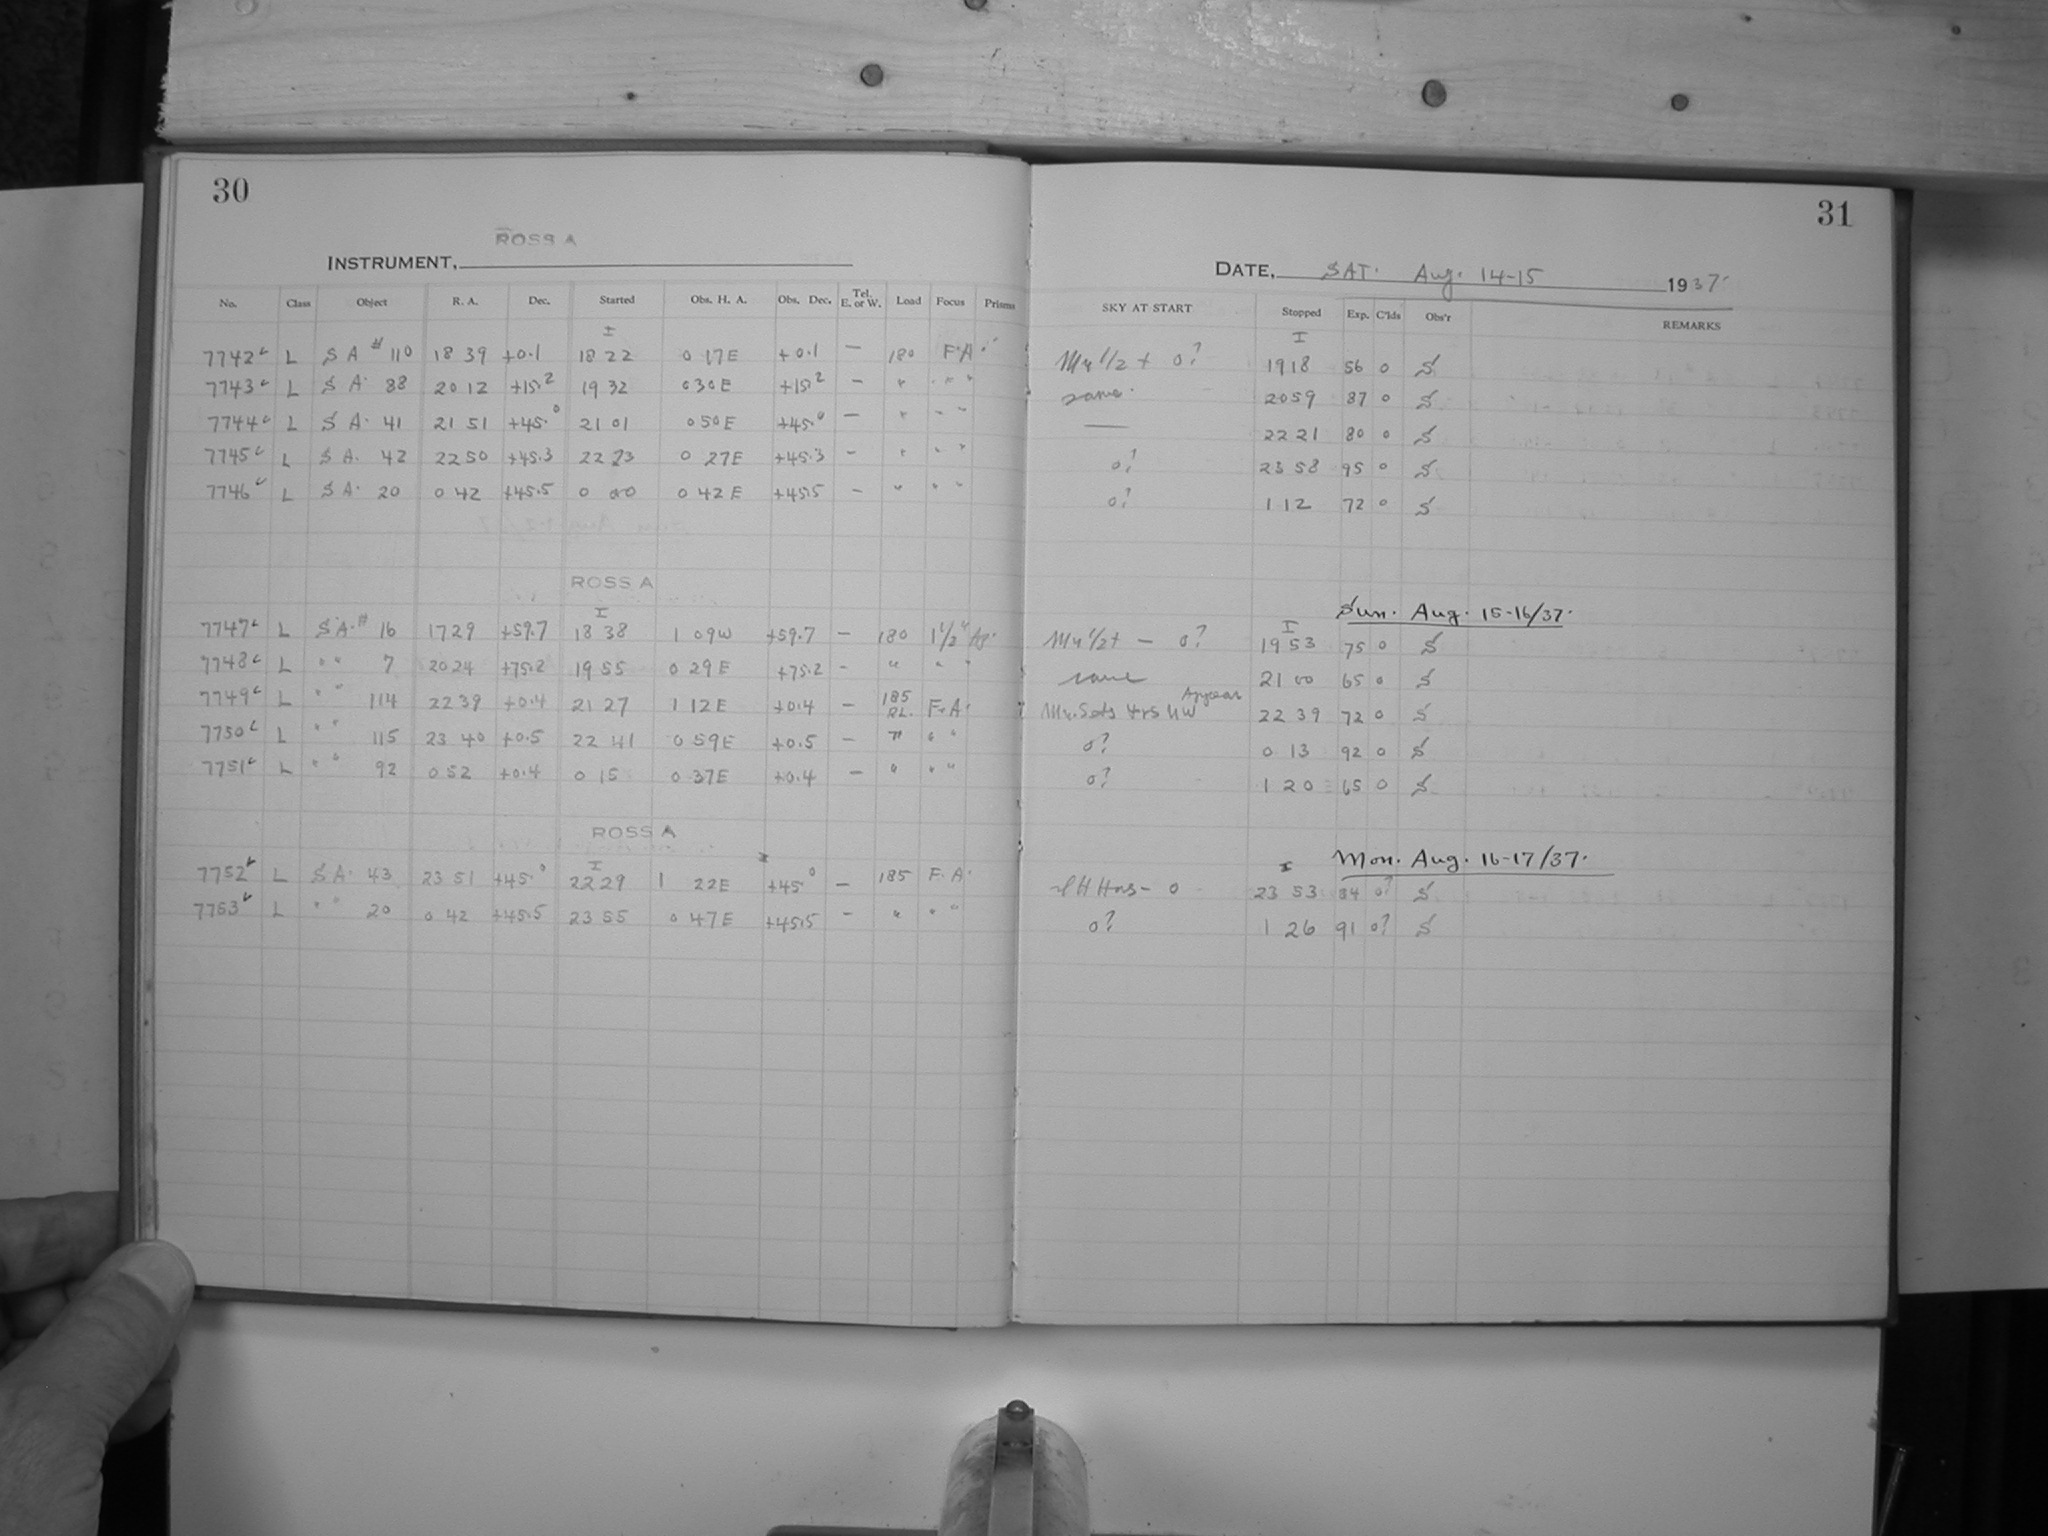 30
31
ROSS A
INSTRUMENT,
DATE, SAT. Aug. 14-15 1937.
No. Class Object R. A. Dec. Started Obs. H. A. Obs. Dec. Tel. E. or W. Load Focus Prisms SKY AT START Stopped Exp. C'lds Obs'r REMARKS
I I
7742 L S A # 110 18 39 +0.1 18 22 0 17E +0.1 — 180 F.A. Mn 1/2 + 0? 1918 56 0 S
7743 L S A. 88 20 12 +15.2 19 32 0 30 E +15.2 — " " " same. 2059 87 0 S
7744 L S A. 41 21 51 +45.0 21 01 0 50 E +45.0 — " " " — 22 21 80 0 S
7745 L S A. 42 22 50 +45.3 22 23 0 27E +45.3 — " " " 0? 23 58 95 0 S
7746 L S A. 20 0 42 +45.5 0 00 0 42 E +45.5 — " " " 0? 1 12 72 0 S
ROSS A
Sun. Aug. 15-16/37.
I I
7747 L S.A.# 16 17 29 +59.7 18 38 1 09W +59.7 — 180 1 1/2" Mn 1/2+ — 0? 19 53 75 0 S
7748 L " " 7 20 24 +75.2 19 55 0 29 E +75.2 - " " " same 21 00 65 0 S
7749 L " " 114 22 39 +0.4 21 27 1 12 E +0.4 — 185 RL. F.A. Mn. Sets 22 39 72 0 S
7750 L " " 115 23 40 +0.5 22 41 0 59E +0.5 — " " " 0? 0 13 92 0 S
7751 L " " 92 0 52 +0.4 0 15 0 37E +0.4 — " " " 0? 1 20 65 0 S
ROSS A
Mon. Aug. 16-17/37.
I I
7752 L S A. 43 23 51 +45.0 22 29 1 22E +45.0 — 185 F. A. 0 23 53 84 0? S
7753 L " " 20 0 42 +45.5 23 55 0 47E +45.5 — " " " 0? 1 26 91 0? S